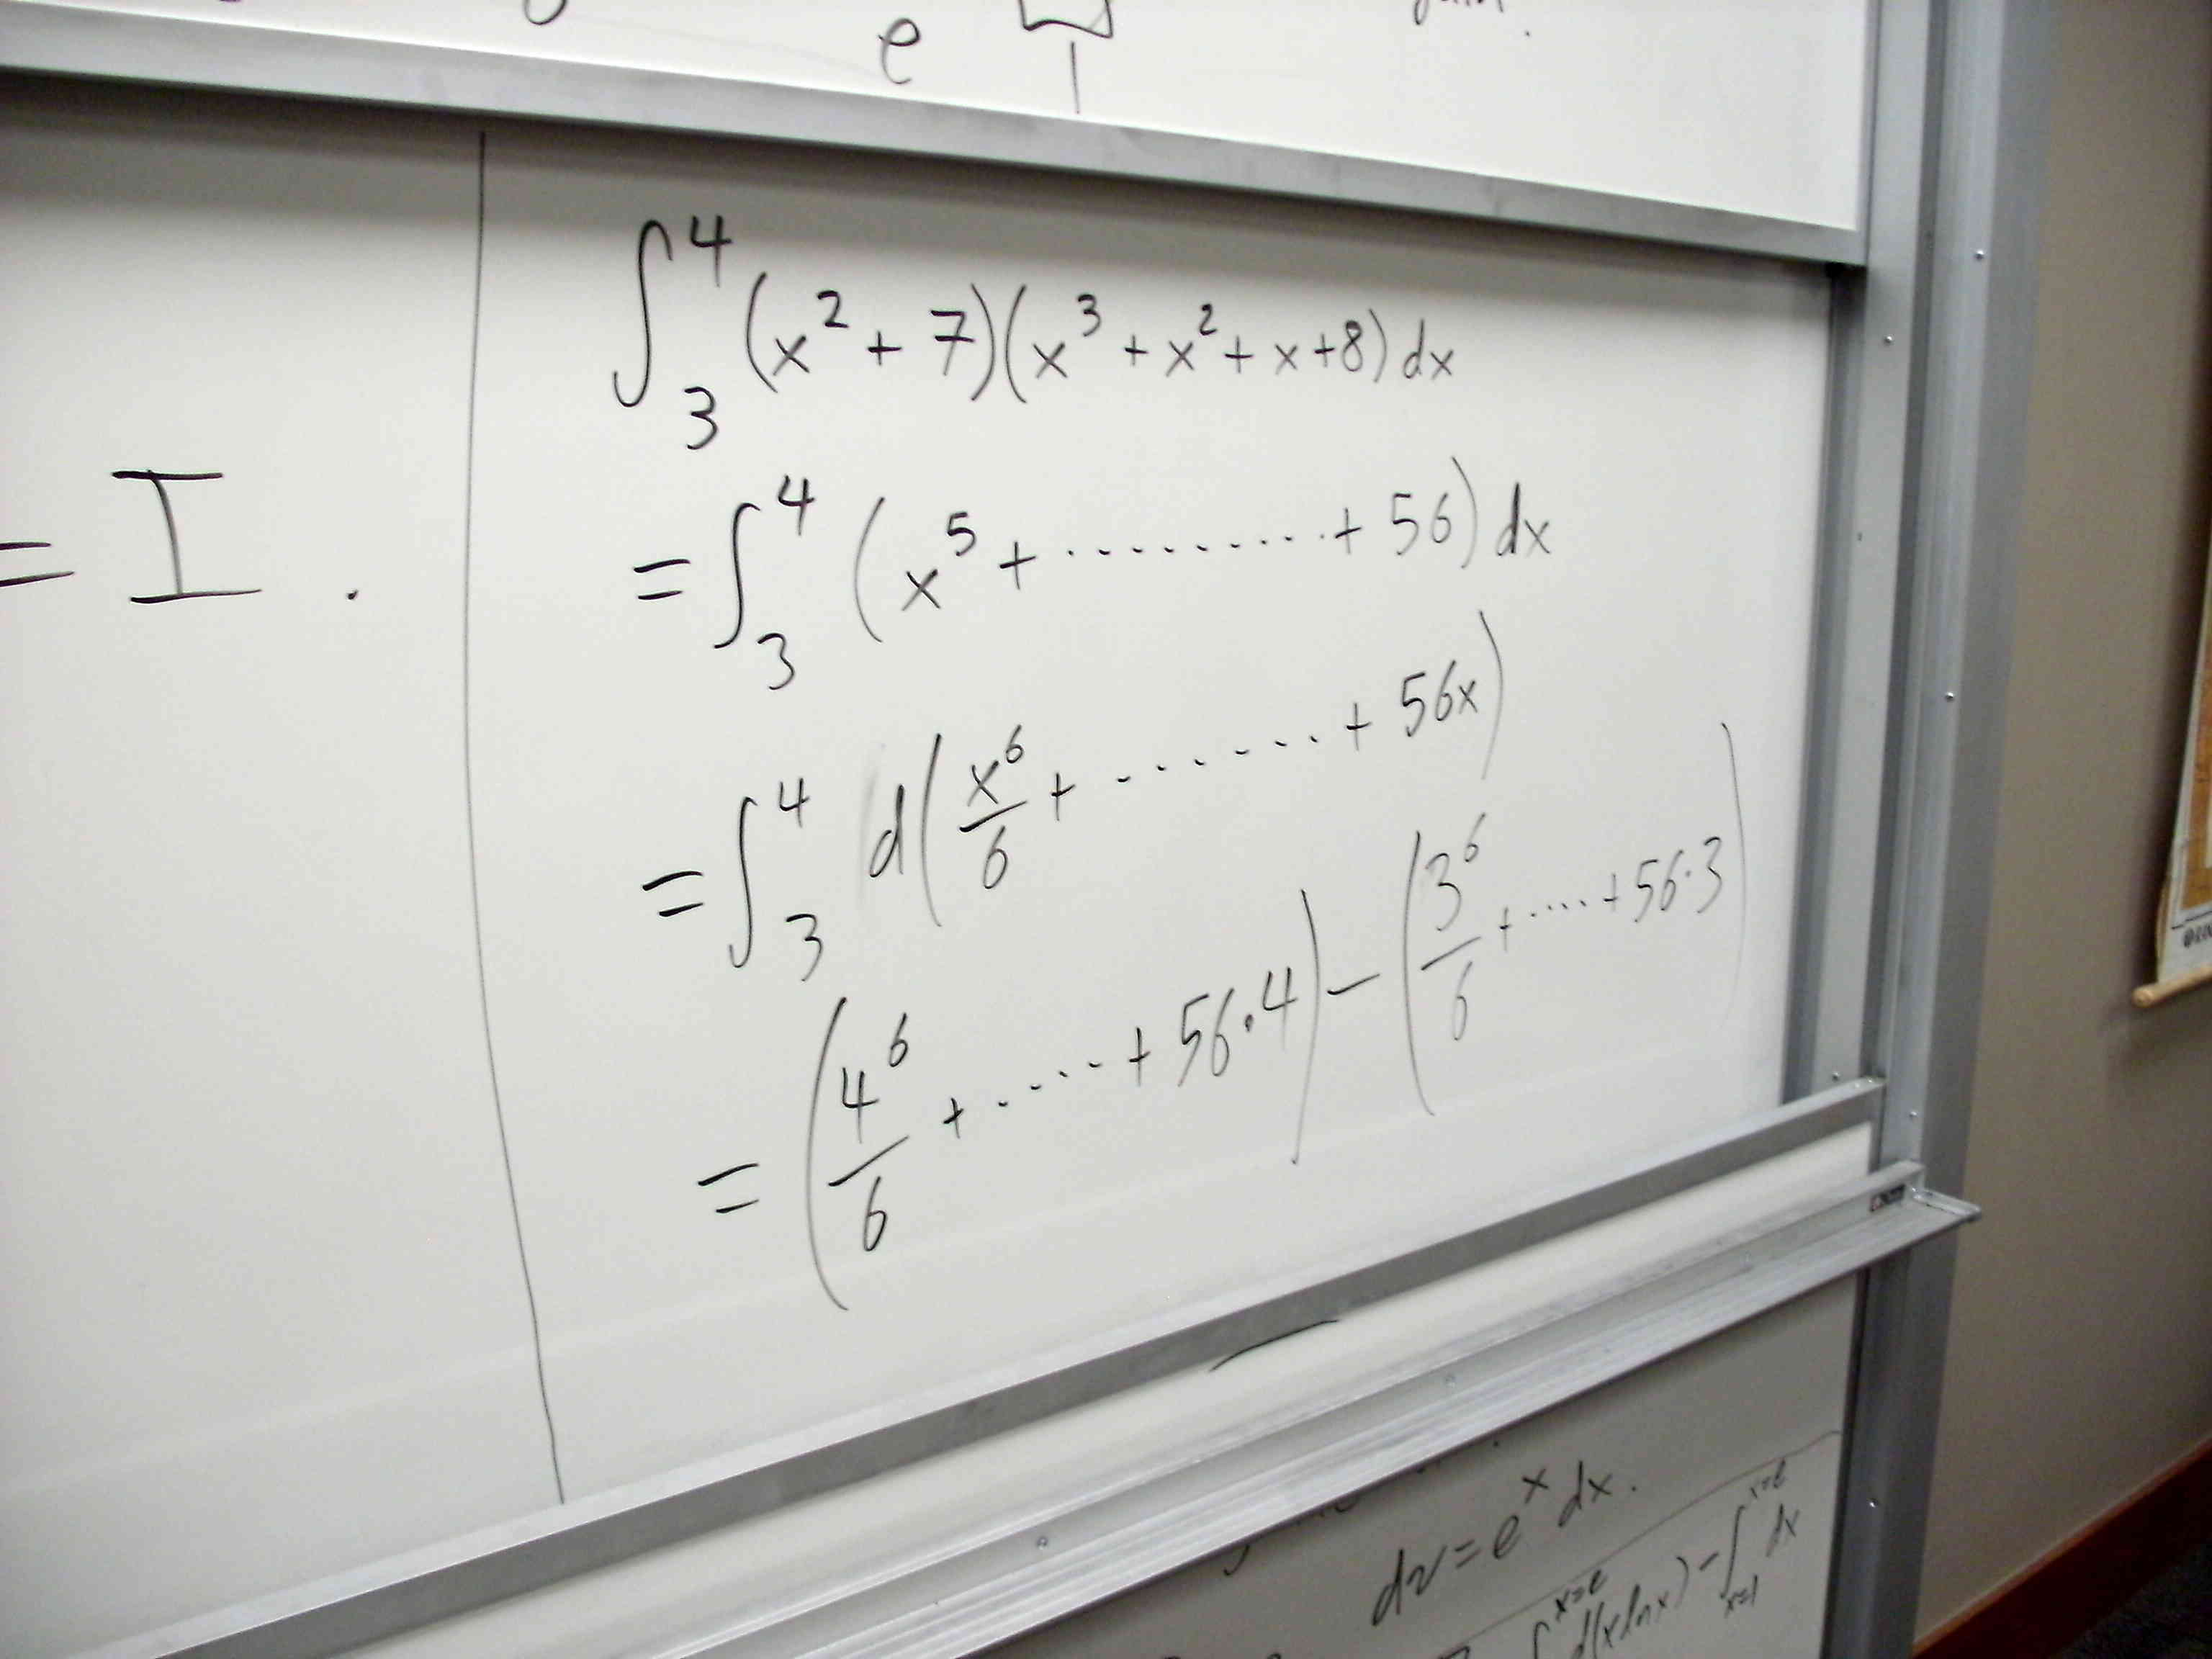 e
= I .
∫_3^4 (x^2 + 7)(x^3 + x^2 + x + 8) dx
= ∫_3^4 (x^5 + .......... + 56) dx
= ∫_3^4 d(x^6/6 + ........ + 56x)
= (4^6/6 + ...... + 56·4) − (3^6/6 + ..... + 56·3)
dv = e^x dx.
∫^{x=e} d(x ln x) − ∫_{x=1}^{x=e} dx